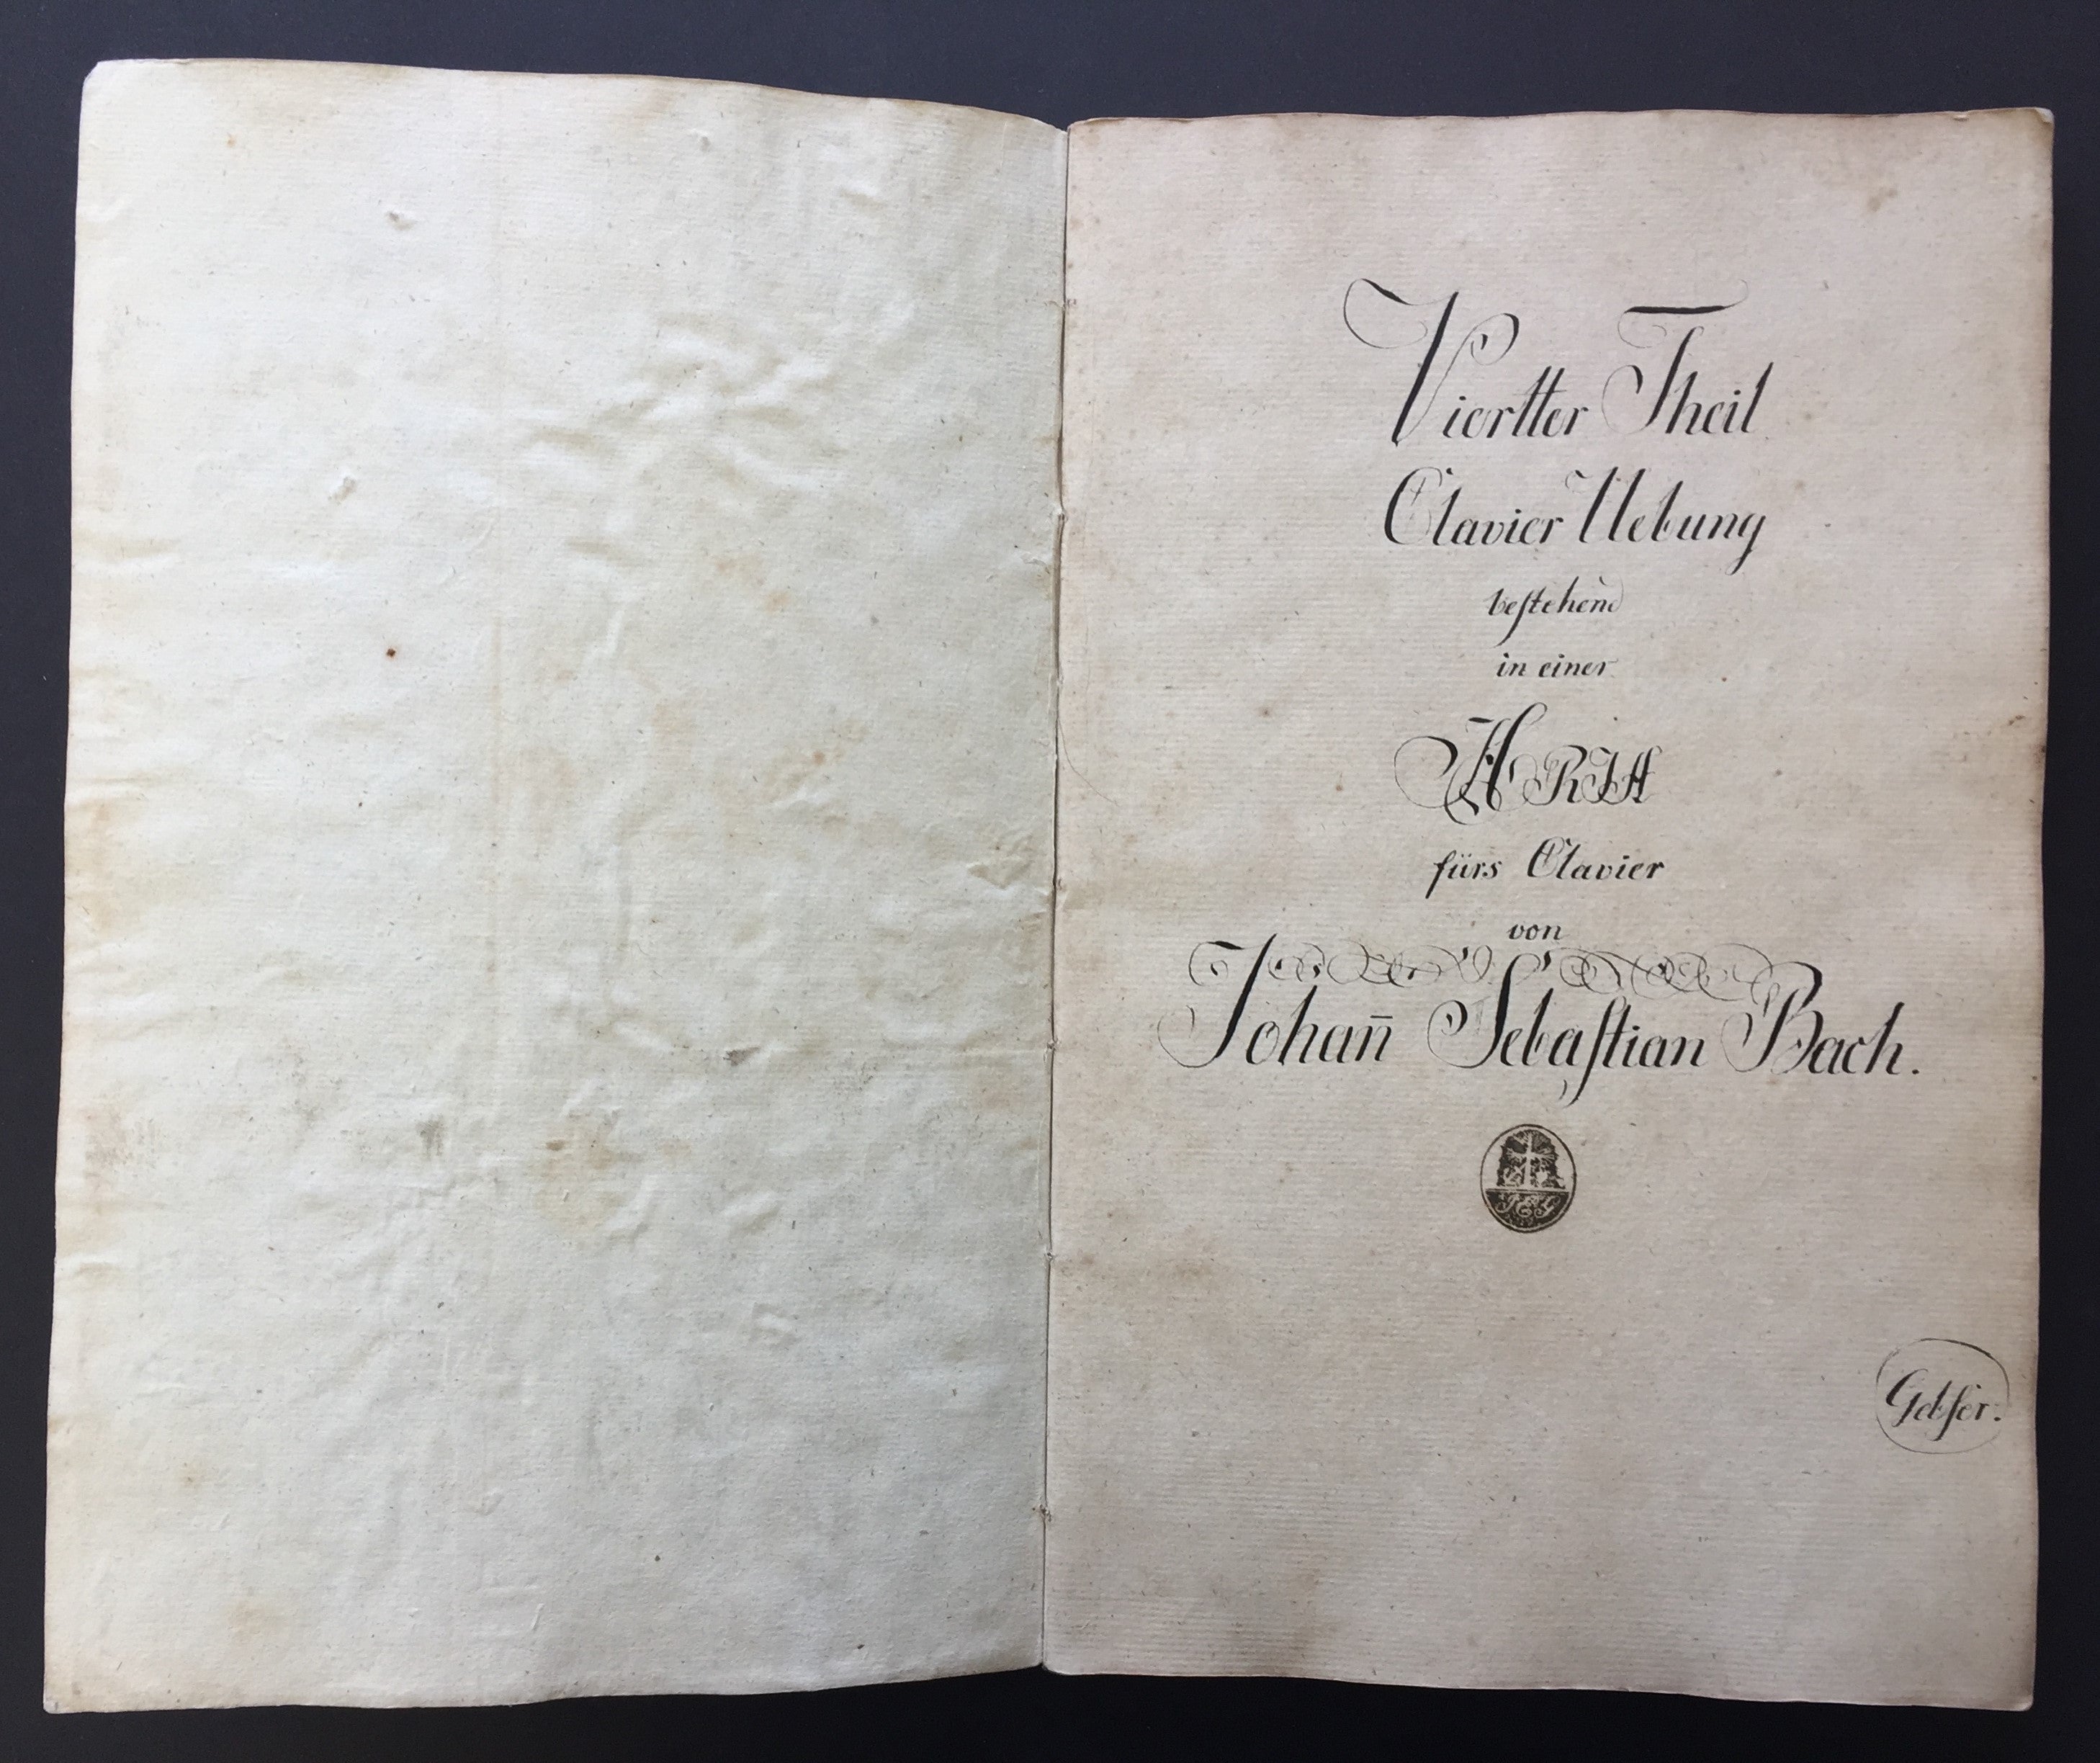 Viertter Theil
Clavier Uebung
beſtehend
in einer
ARIA
fürs Clavier
von
Johan̄ Sebaſtian Bach.
Gebſer.